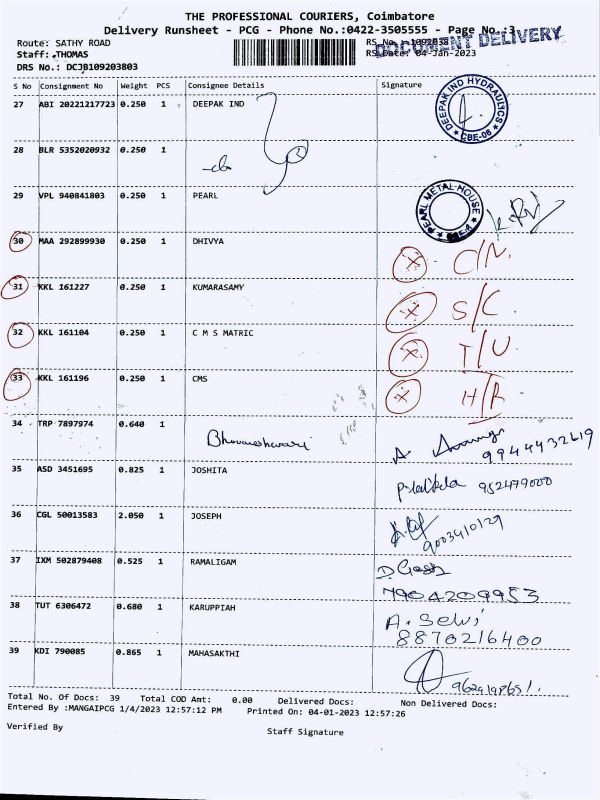 THE PROFESSIONAL COURIERS, Coimbatore
Delivery Runsheet - PCG - Phone No.:0422-3505555 - Page No.:3
Route: SATHY ROAD
RS No.:
DOCUMENT DELIVERY
Staff: THOMAS
RS Date: 04-Jan-2023
DRS No.: DCJB109203803
S No Consignment No Weight PCS Consignee Details Signature
27 ABI 20221217723 0.250 1 DEEPAK IND
DEEPAK IND HYDRAULICS
CBE-06
28 BLR 5352020932 0.250 1
29 VPL 940841803 0.250 1 PEARL
PEARL METAL HOUSE
30 MAA 292899930 0.250 1 DHIVYA
C/N.
31 KKL 161227 0.250 1 KUMARASAMY
S/C.
32 KKL 161104 0.250 1 C M S MATRIC
T/U
33 KKL 161196 0.250 1 CMS
H/R
34 TRP 7897974 0.640 1 Bhuvaneshwari
9944432619
35 ASD 3451695 0.825 1 JOSHITA
952479000
36 CGL 50013583 2.050 1 JOSEPH
9003410129
37 IXM 502879408 0.525 1 RAMALIGAM
7904209953
38 TUT 6306472 0.680 1 KARUPPIAH
A. Selvi
8870216400
39 KDI 790085 0.865 1 MAHASAKTHI
Total No. Of Docs: 39 Total COD Amt: 0.00 Delivered Docs: Non Delivered Docs:
Entered By :MANGAIPCG 1/4/2023 12:57:12 PM Printed On: 04-01-2023 12:57:26
Verified By
Staff Signature